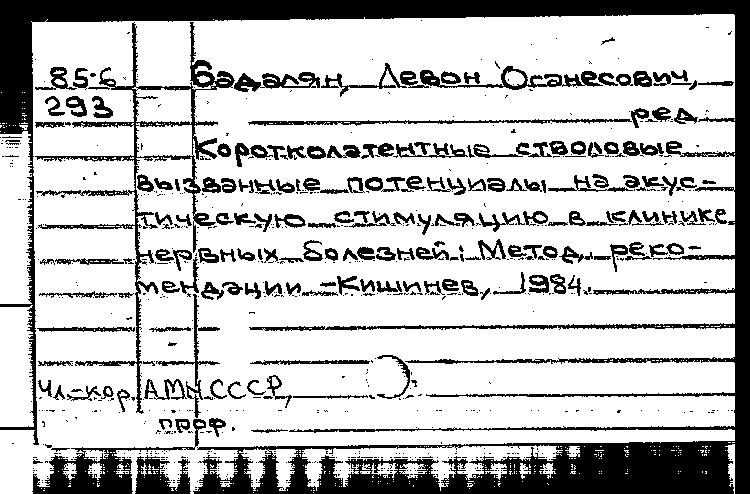 85-6 Бадалян, Левон Оганесович,
293 ред.
Коротколатентные стволовые
вызванные потенциалы на акус-
тическую стимуляцию в клинике
нервных болезней: Метод. реко-
мендации.-Кишинев, 1984.
чл.-кор. АМН СССР,
проф.